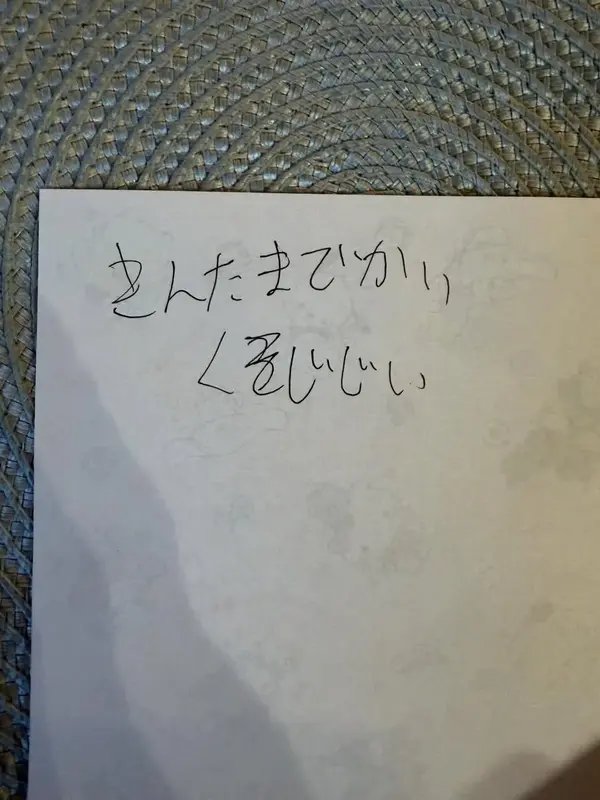 きんたまでかい
くそじじい